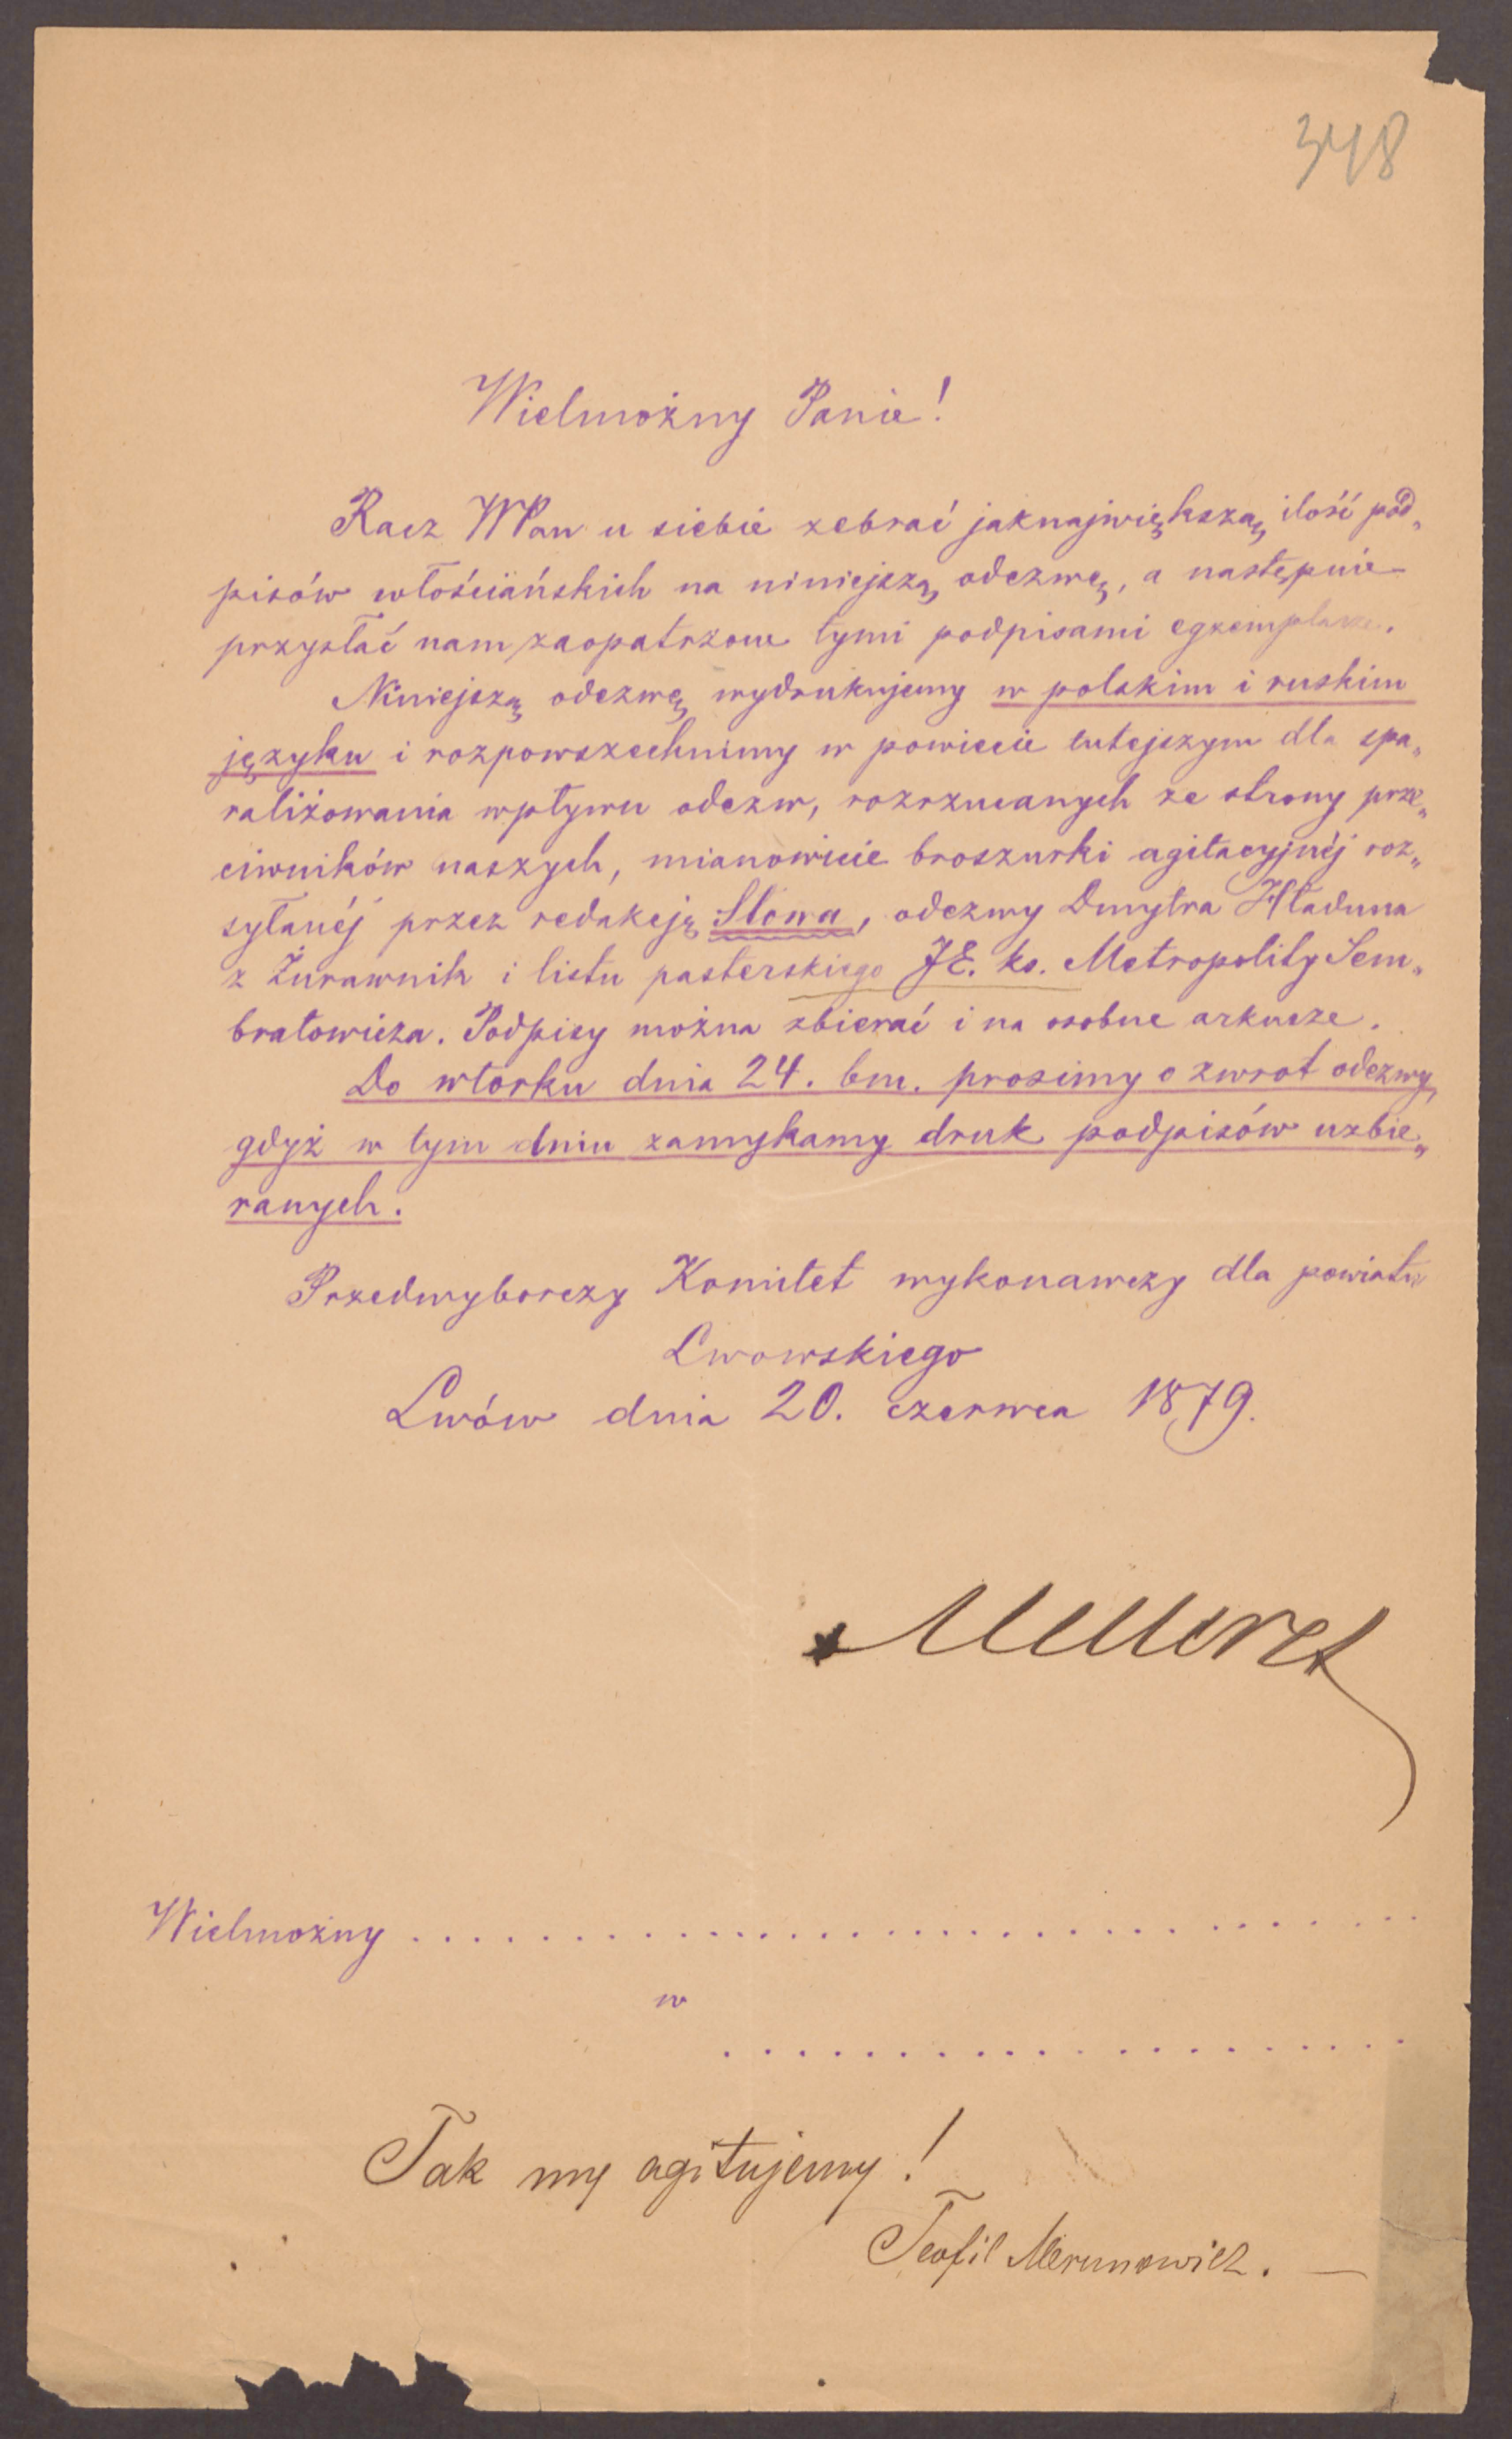 348
Wielmożny Panie!
Racz WPan u siebie zebrać jaknajwiększą ilość pod„
pisów włościańskich na niniejszą odezwę, a następnie
przysłać nam zaopatrzone tymi podpisami egzemplarze.
Niniejszą odezwę wydrukujemy w polskim i ruskim
języku i rozpowszechnimy w powiecie tutejszym dla spa„
raliżowania wpływu odezw, rozrzucanych ze strony prze„
ciwników naszych, mianowicie broszurki agitacyjnéj roz„
syłanéj przez redakcję Słowa, odezwy Dmytra Hładuna
z Żurawnik i listu pasterskiego JE. ks. Metropolity Sem„
bratowicza. Podpisy można zbierać i na osobne arkusze.
Do wtorku dnia 24. bm. prosimy o zwrot odezwy,
gdyż w tym dniu zamykamy druk podpisów uzbie„
ranych.
Przedwyborczy Komitet wykonawczy dla powiatu
Lwowskiego
Lwów dnia 20. czerwca 1879.
Wielmożny . . . . . . . . . . . . . . . . . . . . . . . . . . . . . . . .
w
. . . . . . . . . . . . . . . . . . . .
Tak my agitujemy!
Teofil Merunowicz. —